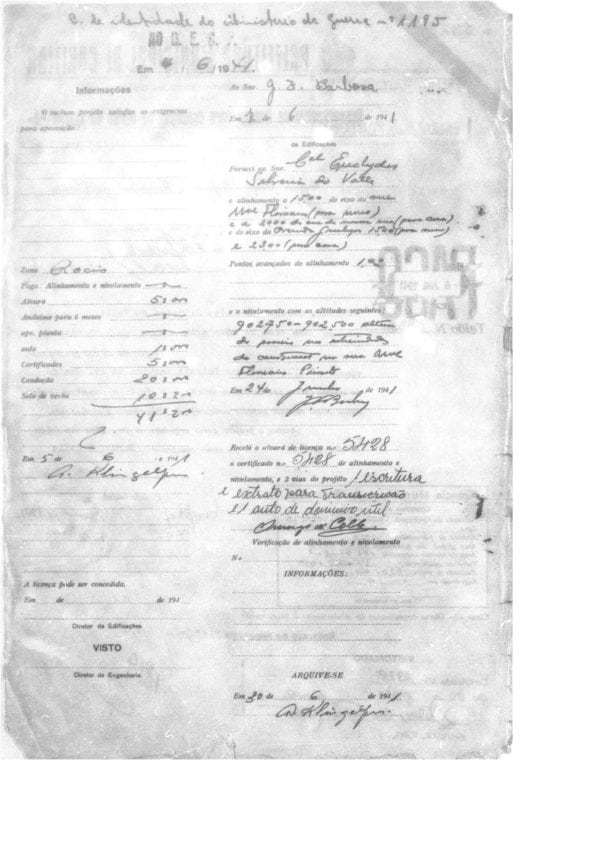 C. de identidade do Ministerio da Guerra nº 1195
AO D. E. C.
Em 4, 6, 1941.
Informações
O incluso projeto satisfaz as exigencias
para aprovação
Zona Rocio
Paga Alinhamento e nivelamento
Alvará 5$000
Andaime para 6 meses
apr. planta
auto 1$000
Certificados 5$000
Condução 20$000
Selo de verba 10$200
41$200
Em 5 de 6 de 1941
A. Klingelfus
A licença pode ser concedida.
Em de de 194
Diretor de Edificações
VISTO
Diretor de Engenharia
Ao Snr. J. F. Barbosa
Em 2 de 6 de 1941
de Edificações
Forneci ao Snr. Cel Euclydes
Silveira do Valle
o alinhamento a 1500 do eixo da rua
Mal Floriano (para muro)
e a 2000 do eixo da mesma rua (para casa)
e do eixo da 1500 (para muro)
e 2300 (para casa)
Pontos avançados do alinhamento 1,00
e o nivelamento com as altitudes seguintes:
902750-902500
do passeio
na rua Mal
Floriano Peixoto
Em 24 de Junho de 1941
Recebi o alvará de licença n.o 5428
o certificado n.o 5428 de alinhamento e
nivelamento, e 2 vias do projéto 1 escritura
1 extrato para transcrição
e 1 auto de dominio util
Verificação de alinhamento e nivelamento
N.o
INFORMAÇÕES:
ARQUIVE-SE
Em 30 de 6 de 1941
A. Klingelfus.
PAGO
6 JUN. 1941
Talão N.